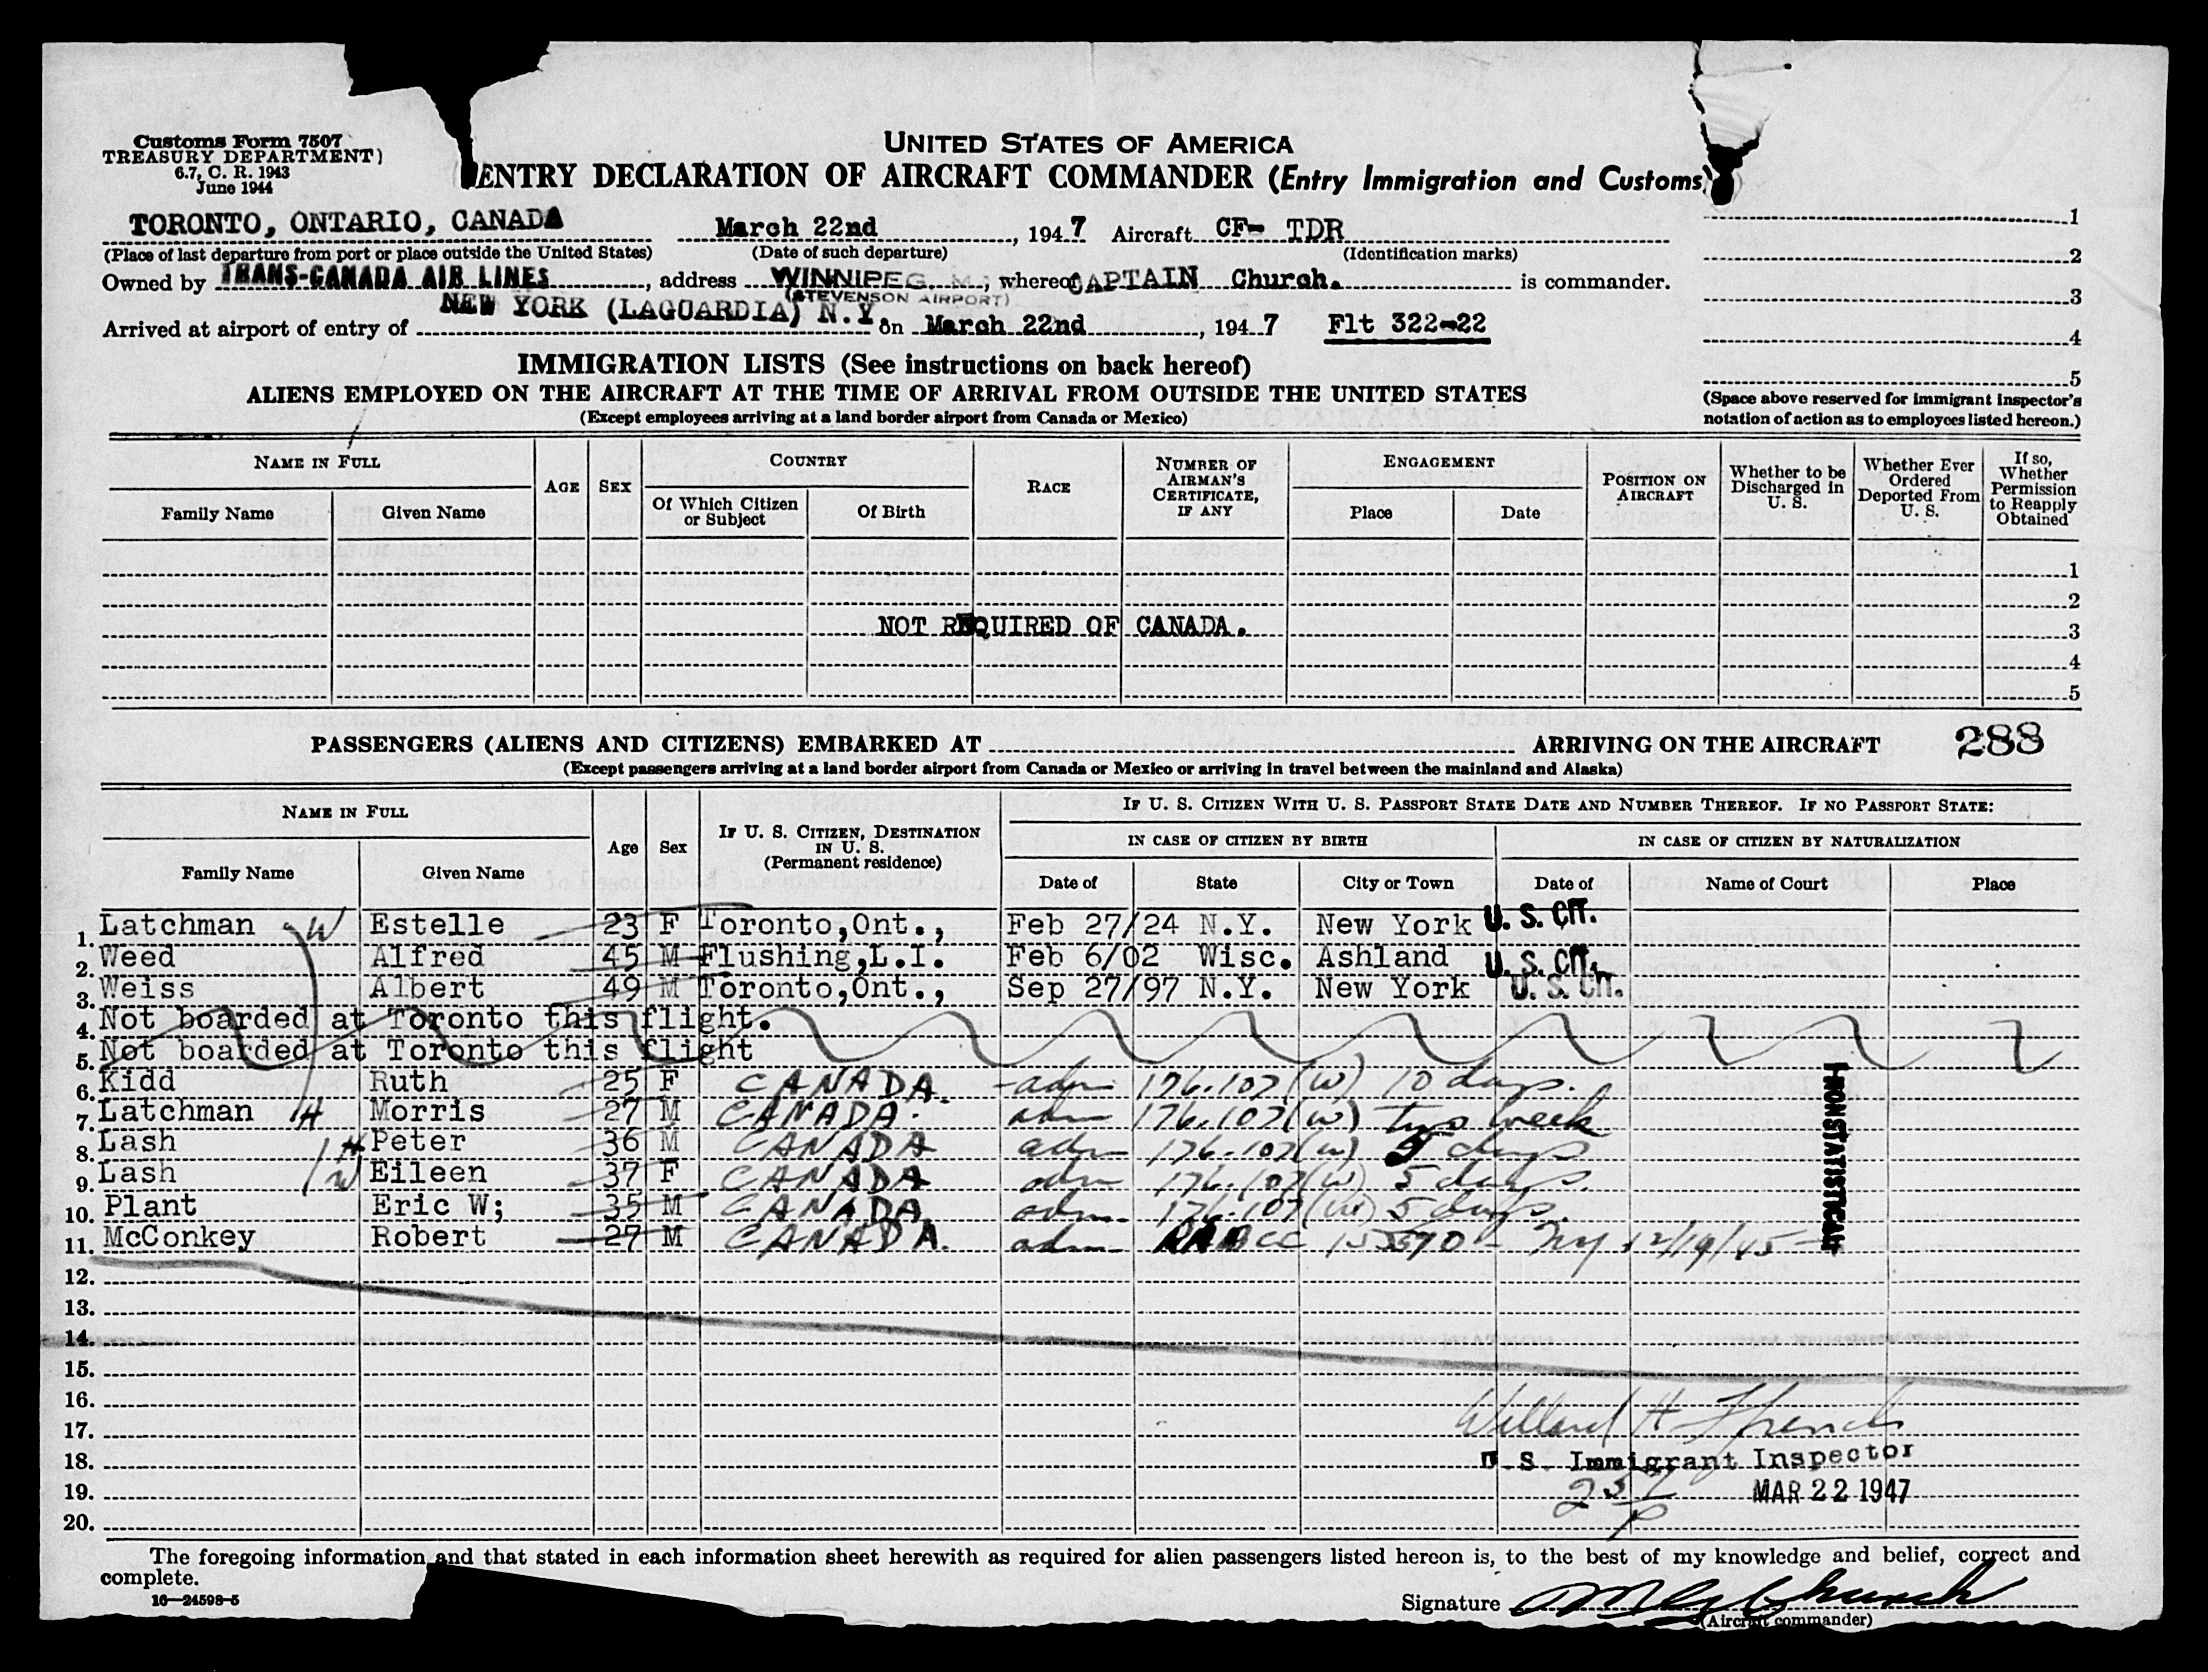 Customs Form 7507
TREASURY DEPARTMENT)
6.7, C. R. 1943
June 1944
UNITED STATES OF AMERICA
ENTRY DECLARATION OF AIRCRAFT COMMANDER (Entry Immigration and Customs)
TORONTO, ONTARIO, CANADA March 22nd, 1947 Aircraft CF- TDR
(Place of last departure from port or place outside the United States) (Date of such departure) (Identification marks)
Owned by TRANS-CANADA AIR LINES, address WINNIPEG. M.; whereof CAPTAIN Church. is commander.
(STEVENSON AIRPORT)
Arrived at airport of entry of NEW YORK (LAGUARDIA) N.Y. on March 22nd, 1947 Flt 322-22
1
2
3
4
5
(Space above reserved for immigrant inspector's
notation of action as to employees listed hereon.)
IMMIGRATION LISTS (See instructions on back hereof)
ALIENS EMPLOYED ON THE AIRCRAFT AT THE TIME OF ARRIVAL FROM OUTSIDE THE UNITED STATES
(Except employees arriving at a land border airport from Canada or Mexico)
NAME IN FULL
Family Name Given Name
AGE SEX
COUNTRY
Of Which Citizen or Subject Of Birth
RACE
NUMBER OF AIRMAN'S CERTIFICATE, IF ANY
ENGAGEMENT
Place Date
POSITION ON AIRCRAFT
Whether to be Discharged in U. S.
Whether Ever Ordered Deported From U. S.
If so, Whether Permission to Reapply Obtained
1
2
NOT REQUIRED OF CANADA. 3
4
5
PASSENGERS (ALIENS AND CITIZENS) EMBARKED AT ARRIVING ON THE AIRCRAFT 288
(Except passengers arriving at a land border airport from Canada or Mexico or arriving in travel between the mainland and Alaska)
NAME IN FULL
Family Name Given Name
Age Sex
IF U. S. CITIZEN, DESTINATION IN U. S. (Permanent residence)
IF U. S. CITIZEN WITH U. S. PASSPORT STATE DATE AND NUMBER THEREOF. IF NO PASSPORT STATE:
IN CASE OF CITIZEN BY BIRTH IN CASE OF CITIZEN BY NATURALIZATION
Date of State City or Town Date of Name of Court Place
1. Latchman W Estelle 23 F Toronto,Ont., Feb 27/24 N.Y. New York U. S. CIT.
2. Weed Alfred 45 M Flushing,L.I. Feb 6/02 Wisc. Ashland U. S. CIT.
3. Weiss Albert 49 M Toronto,Ont., Sep 27/97 N.Y. New York U. S. CIT.
4. Not boarded at Toronto this flight.
5. Not boarded at Toronto this flight
6. Kidd Ruth 25 F CANADA. adm 176.107(w) 10 days.
7. Latchman H Morris 27 M CANADA. adm 176.107(w) two week
8. Lash H Peter 36 M CANADA adm 176.107(w) 5 days
9. Lash W Eileen 37 F CANADA adm 176.107(w) 5 days.
10. Plant Eric W; 35 M CANADA. adm. 176.107(w) 5 days.
11. McConkey Robert 27 M CANADA. adm BCC 15570 - NY 12/19/45
NONSTATISTICAL
12.
13.
14.
15.
16.
17. Willard H French
18. U. S. Immigrant Inspector
19. MAR 22 1947
20.
The foregoing information and that stated in each information sheet herewith as required for alien passengers listed hereon is, to the best of my knowledge and belief, correct and
complete.
16—24598-5
Signature Church
(Aircraft commander)